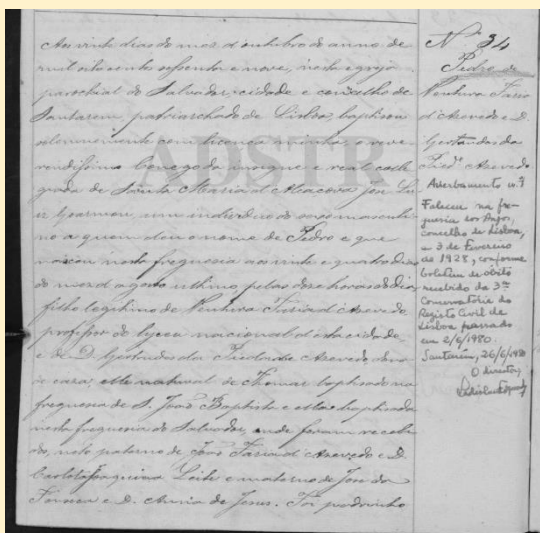 Aos vinte dias do mes d'outubro do anno de
mil oito centos sessenta e nove, n'esta egreja
parochial do Salvador, cidade e concelho de
Santarem, patriarchado de Lisboa, baptisou
solemnemente com licença minha, o reve-
rendissimo Conego da insigne e real colle-
giada de Santa Maria d'Alcaçova, José Lu-
iz um individuo do sexo masculi-
no a quem deu o nome de Pedro e que
nasceu n'esta freguesia aos vinte e quatro dias
do mez d'agosto ultimo, pelas doze horas do dia
filho legitimo de Venture Faria d'Azevedo,
professor do lyceu nacional d'esta cidade
e de D. Gertrudes da Piedade Azevedo, dona
de casa, elle natural de Thomar baptisado na
freguesia de S. João Baptista e ella baptisada
n'esta freguesia do Salvador, onde foram recebi-
dos, neto paterno de João Faria d'Azevedo e D.
Carlota Joaquina Leite e materno de José da
Fonseca e D. Maria de Jesus. Foi padrinho
Nº 34
Pedro de
Venture Faria
d'Azevedo e D.
Gertrudes da
Pied.e Azevedo
Averbamento nº 1
Faleceu na fre-
guesia dos Anjos,
concelho de Lisboa,
a 3 de Fevereiro
de 1928, conforme
boletim de óbito
recebido da 3ª
Conservatória do
Registo Civil de
Lisboa passado
em 2/6/1980.
Santarém, 26/6/1980
O director,
ADSTR